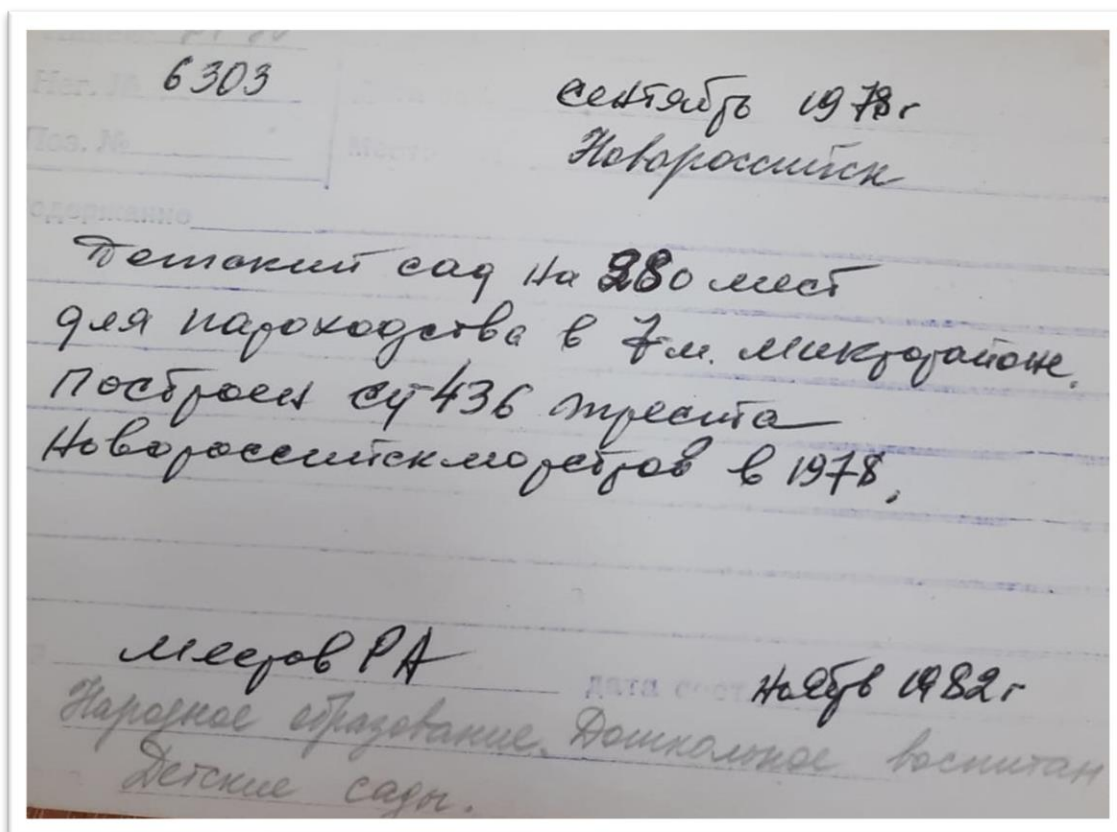 Нег. № 6303
сентябрь 1978 г
Поз. №
Место
Новороссийск
одержание
Детский сад на 280 мест
для пароходства в 7 м. микрорайоне.
Построен СУ-436 треста
Новороссийскморстрой в 1978.
РА
дата сост ноябрь 1982 г
Народное образование. Дошкольное воспитан
Детские сады.